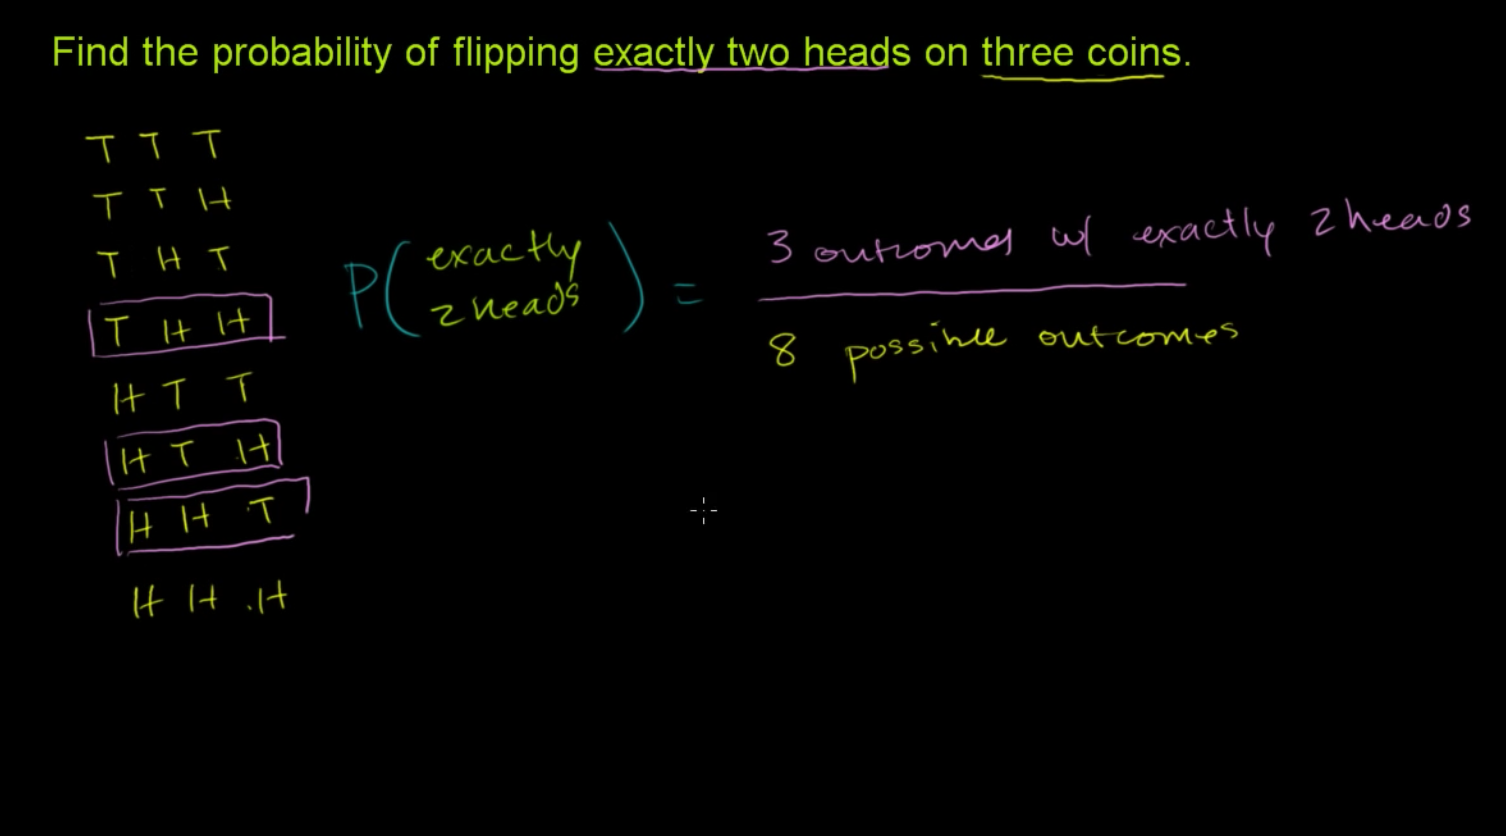 Find the probability of flipping exactly two heads on three coins.
T T T
T T H
T H T
T H H
H T T
H T H
H H T
H H H
P( exactly
2 heads ) =
3 outcomes w/ exactly 2 heads
8 possible outcomes